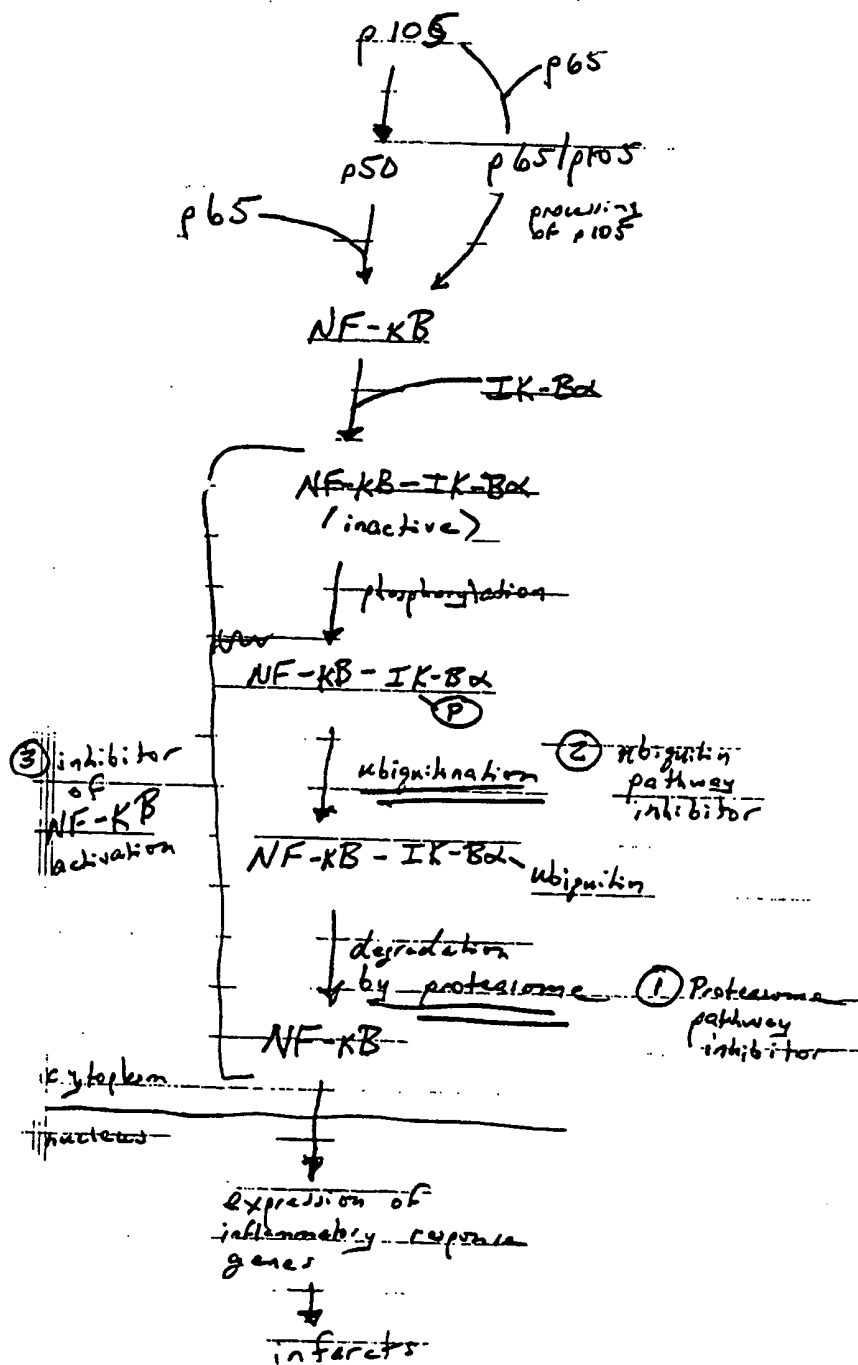 p105
p65
p50
p65/p105
processing
of p105
p65
NF-κB
IK-Bα
NF-κB-IK-Bα
(inactive)
phosphorylation
NF-κB-IK-Bα
P
③ inhibitor
of
NF-κB
activation
ubiquitination
② ubiquitin
pathway
inhibitor
NF-κB-IK-Bα
ubiquitin
degradation
by proteasome
① Proteasome
pathway
inhibitor
NF-κB
nucleus
expression of
inflammatory response
genes
infarcts